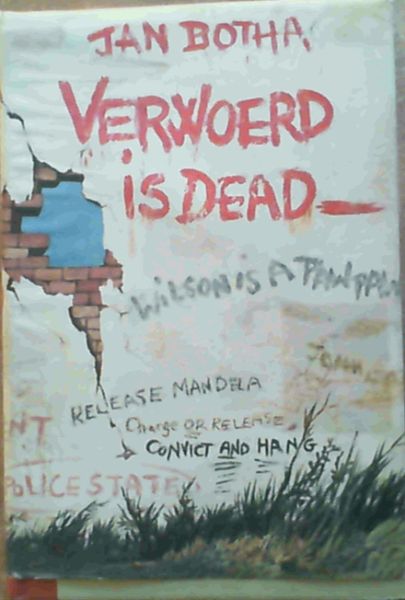 JAN BOTHA
VERWOERD
iS DEAD
WILSON iS A
RELEASE MANDELA
Charge OR RELEASE
CONVICT AND HANG
NT
POLICE STATE